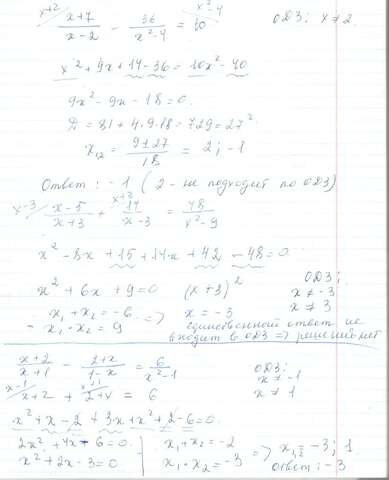 x+2/ (x+7)/(x-2) - 36/(x²-4) = x²-4/ 10    ОДЗ: x ≠ 2.
x² + 9x + 14 - 36 = 10x² - 40
9x² - 9x - 18 = 0.
Д = 81 + 4·9·18 = 729 = 27².
x₁,₂ = (9±27)/18 = 2; -1
Ответ: -1 (2 - не подходит по ОДЗ)
x-3/ (x-5)/(x+3) + x+3/ 14/(x-3) = 48/(x²-9)
x² - 8x + 15 + 14x + 42 - 48 = 0.
x² + 6x + 9 = 0   (x+3)²   ОДЗ:
x ≠ -3
x ≠ 3
x₁ + x₂ = -6.
x₁ · x₂ = 9   => x = -3
единственный ответ не
входит в ОДЗ => решений нет
(x+2)/(x+1) - (2+x)/(1-x) = 6/(x²-1)   ОДЗ:
x ≠ -1
x ≠ 1
x-1/ x+2 + x+1/ 2+x = 6
x² + x - 2 + 3x + x² + 2 - 6 = 0.
2x² + 4x - 6 = 0.
x² + 2x - 3 = 0.
x₁ + x₂ = -2
x₁ · x₂ = -3   => x₁,₂ = -3; 1
Ответ: -3